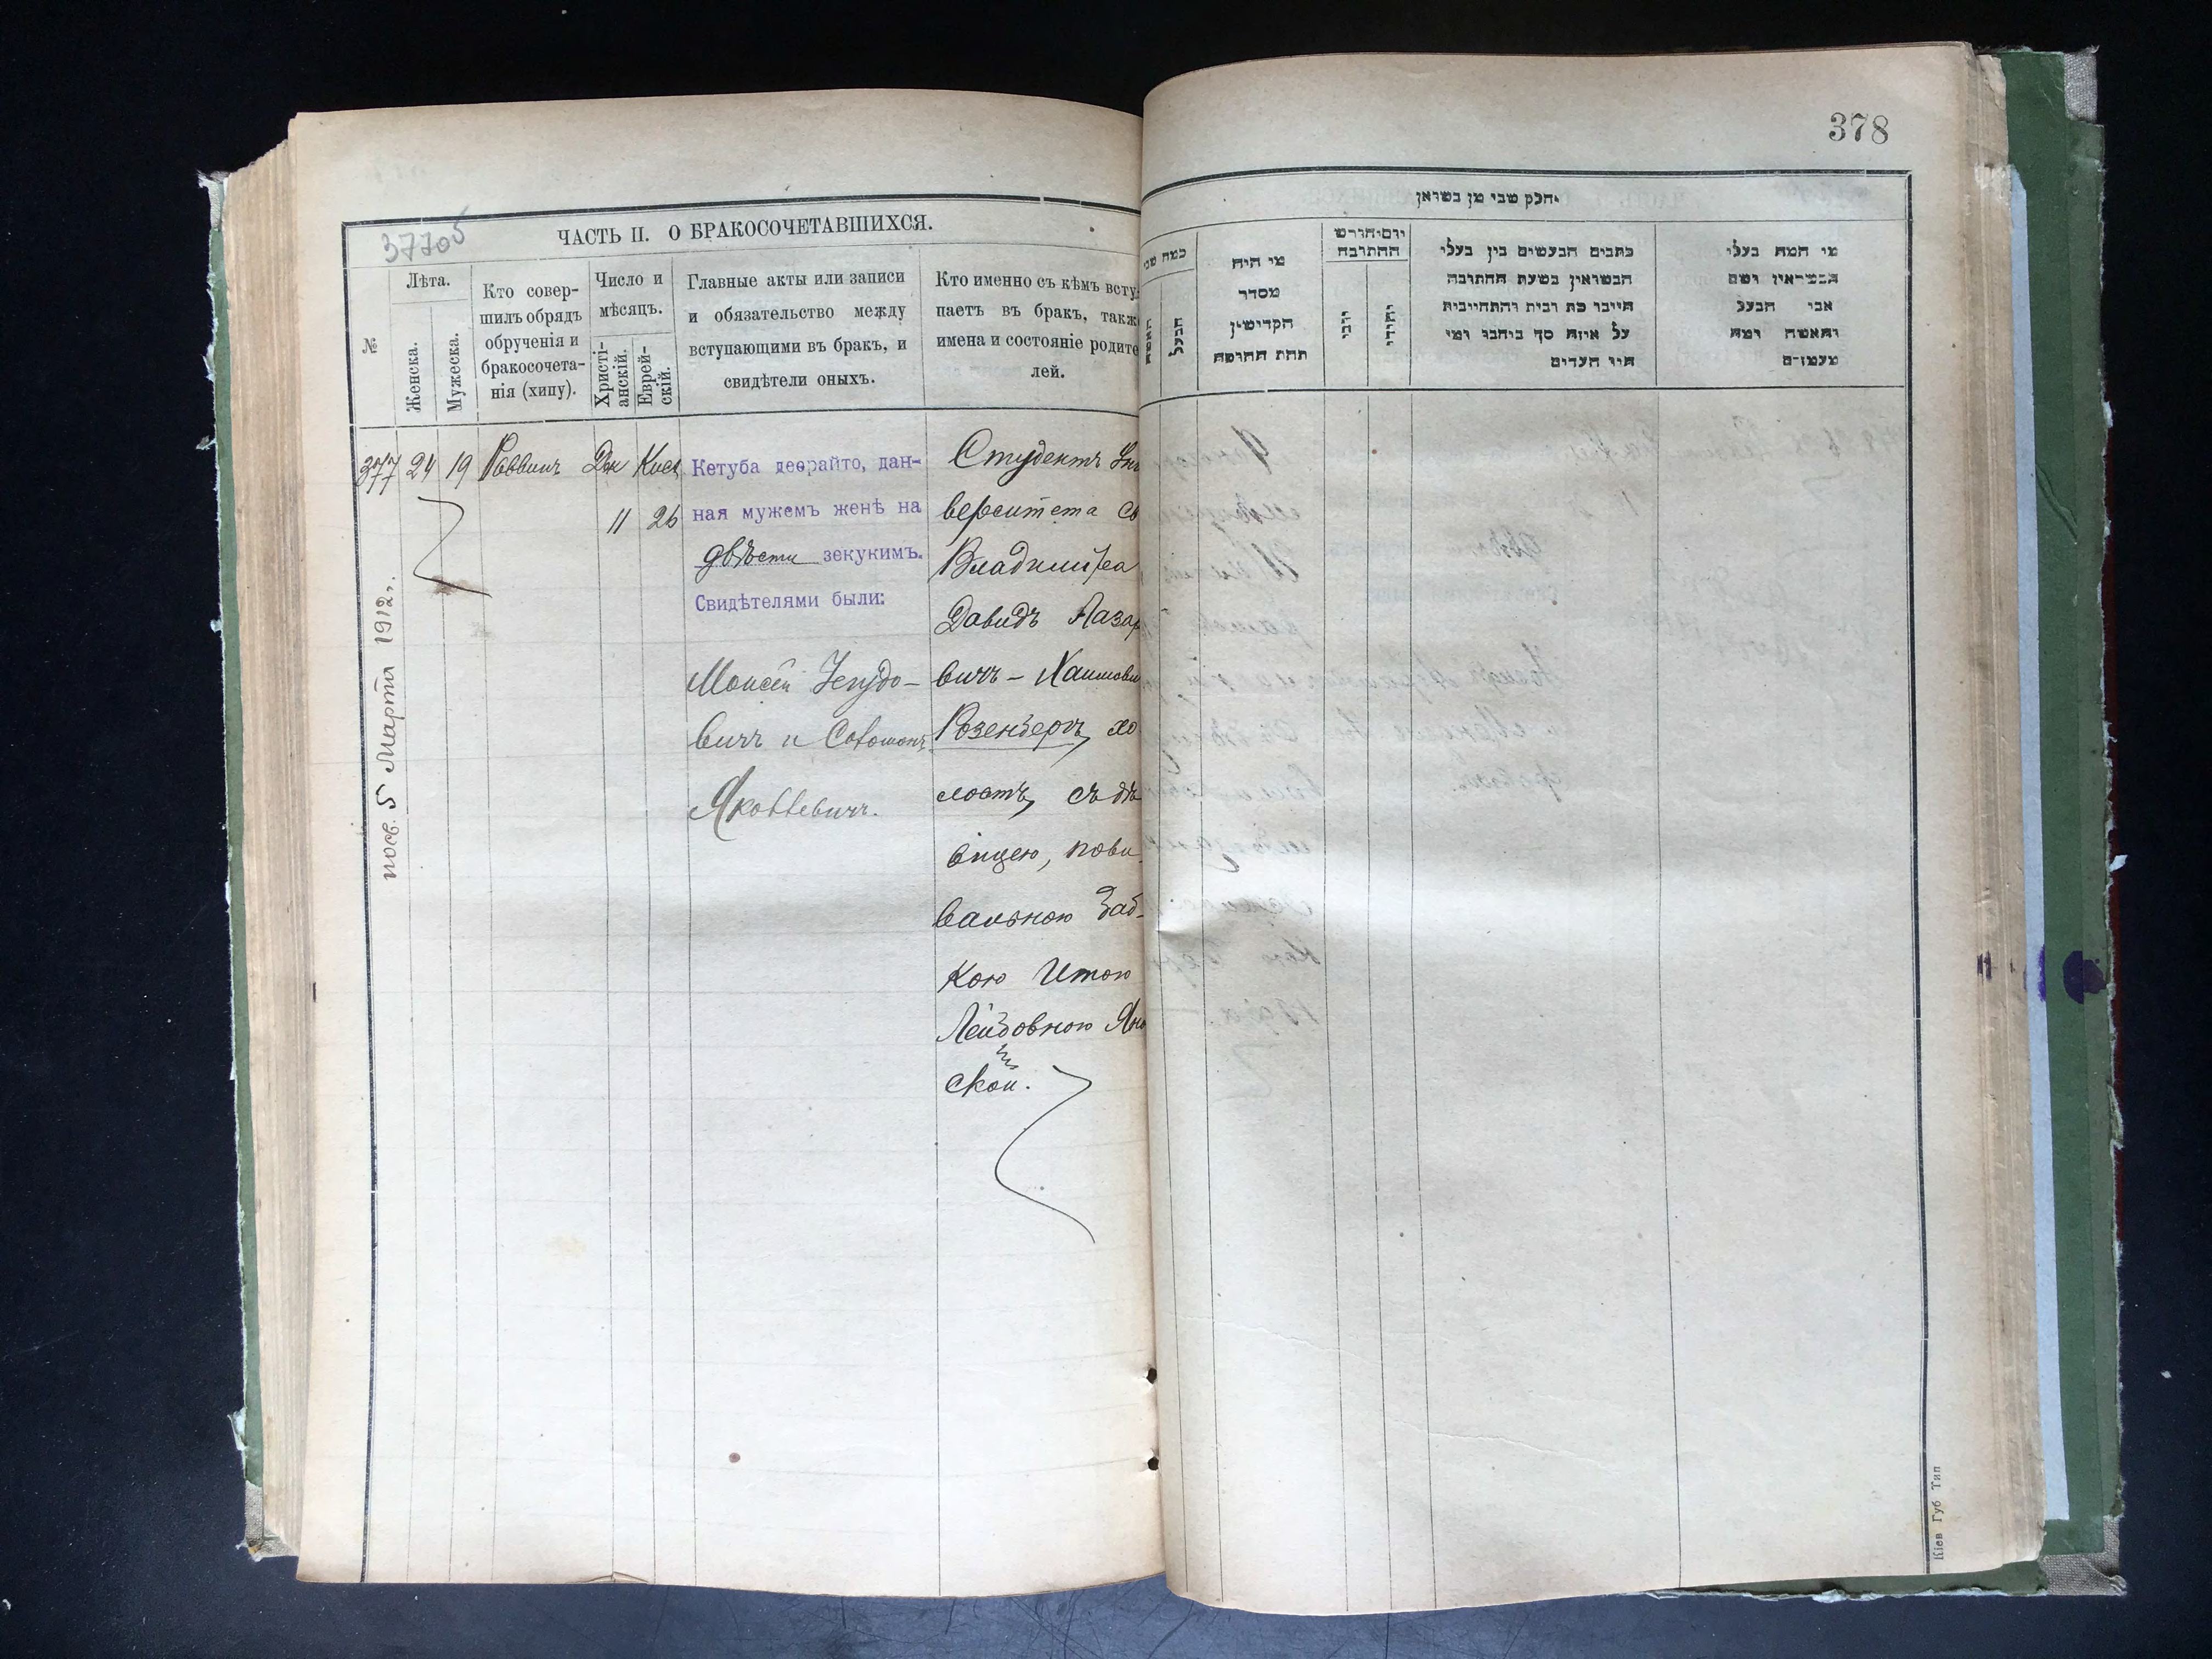 378
37705
ЧАСТЬ II. О БРАКОСОЧЕТАВШИХСЯ.
№
Лѣта.
Женска.
Мужеска.
Кто совер-
шилъ обрядъ
обрученія и
бракосочета-
нія (хипу).
Число и
мѣсяцъ.
Христі-
анскій.
Еврей-
скій.
Главные акты или записи
и обязательство между
вступающими въ бракъ, и
свидѣтели оныхъ.
Кто именно съ кѣмъ всту-
паетъ въ бракъ, также
имена и состояніе родите
лей.
377 24 19 Раввинъ Дек Кисл
11 26
Кетуба деорайто, дан-
ная мужемъ женѣ на
двѣсти зекукимъ.
Свидѣтелями были:
Моисей Іегудо-
вичъ и Соломонъ
Яковлевичъ.
Студентъ Уни
верситета Св
Владиміра
Давидъ Лазар
вичъ - Хаимови
Розенбергъ, хо
лостъ, съ дѣ
вицею, пови
вальною баб-
кою Итою
Лейбовною Яно
ской.
посв. 5 Марта 1912 г.
חלק שני מן נשואין
כמה שני
האשה
הבעל
מי היה
מסדר
הקדושין
תחת החופה
יום וחודש
החתונה
נוצרי
יהודי
כתבים הנעשים בין בעלי
הנשואין בשעת החתונה
חיובי כת ובית והתחייבות
על איזה סך ביחנו ומי
היו העדים
מי המה בעלי
הנשואין ושם
אבי הבעל
והאשה ומה
מעמדם
Кіев Губ Тип